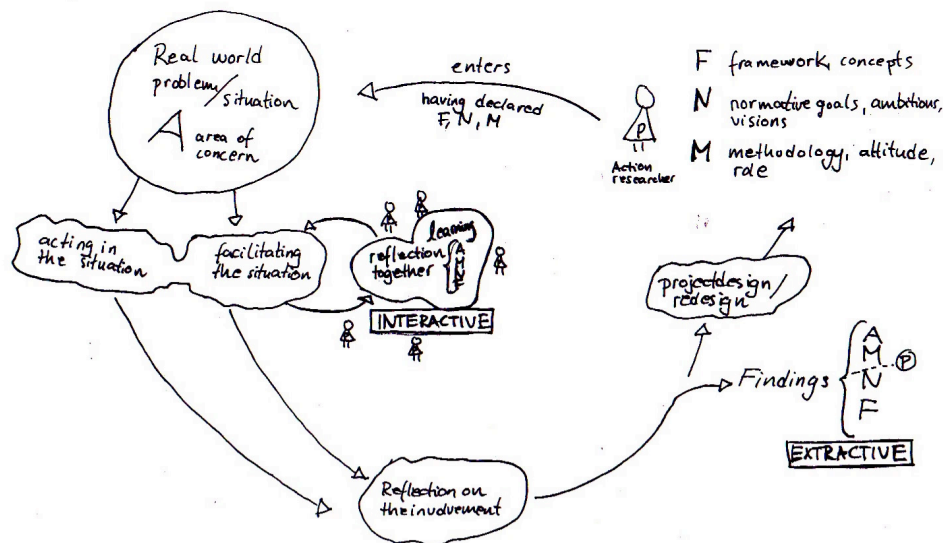 Real world
problem/
situation
A area of
concern
enters
having declared
F, N, M
P
Action
researcher
F framework, concepts
N normative goals, ambitious,
visions
M methodology, attitude,
role
acting in
the situation
facilitating
the situation
reflection
together
learning
A
M
N
F
INTERACTIVE
projectdesign/
redesign
Findings
A
M
N
F
P
EXTRACTIVE
Reflection on
the involvement